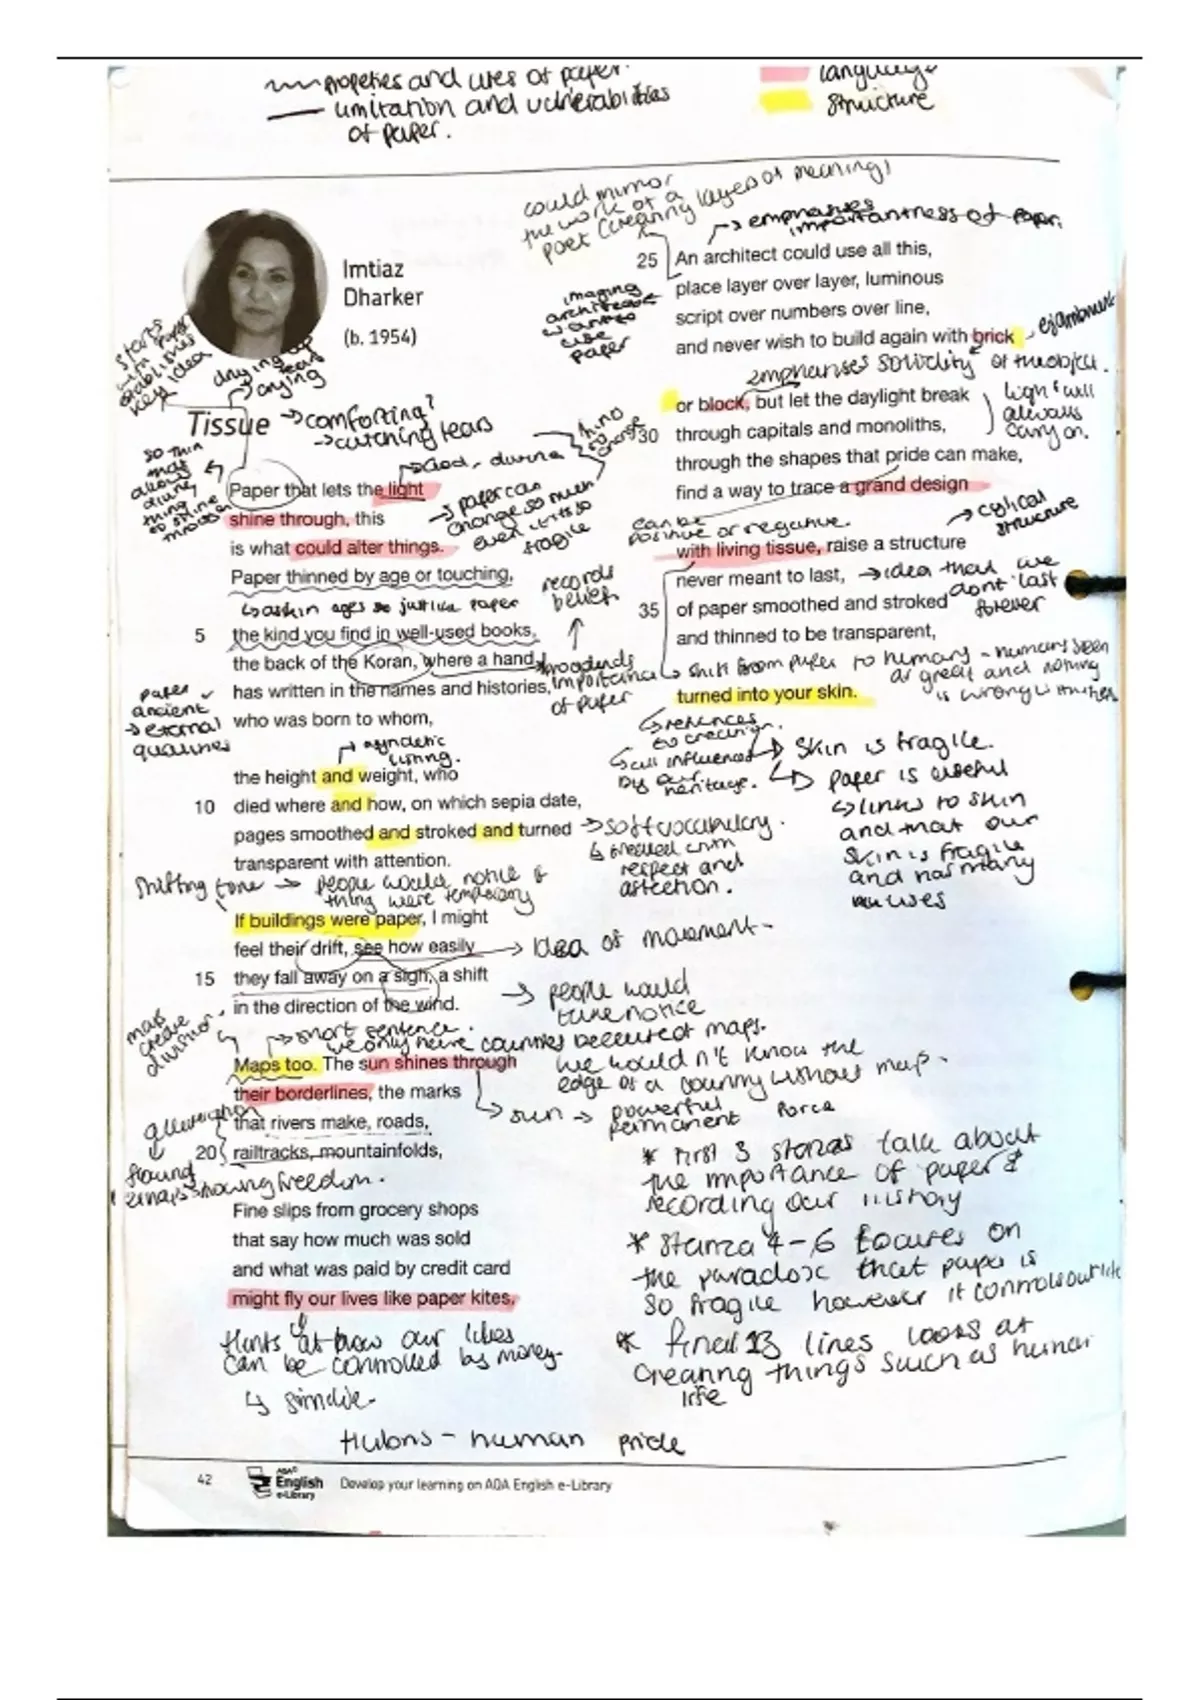 properties and uses of paper.
limitation and vulnerabilities
of paper.
language
structure
Imtiaz
Dharker
(b. 1954)
starts
with
establishes
key idea
drying up
tears
crying
Tissue
→comforting?
→catching tears
so thin
may
allow
thing
to shine
through
God, divine
Paper that lets the light
shine through, this
is what could alter things.
Paper thinned by age or touching,
→ paper can
change so much
even if its so
fragile
↳ as skin ages so just like paper
5 the kind you find in well-used books,
the back of the Koran, where a hand
has written in the names and histories,
who was born to whom,
records
beliefs
importance
of paper
paper
ancient
→ eternal
qualities
asyndetic
listing.
the height and weight, who
10 died where and how, on which sepia date,
pages smoothed and stroked and turned
transparent with attention.
→ soft vocabulary.
↳ treated with
respect and
affection.
Shifting tone → people would notice if
thing were temporary
If buildings were paper, I might
feel their drift, see how easily
15 they fall away on a sigh, a shift
in the direction of the wind.
→ Idea of movement -
→ people would
take notice
maps
create
division
→ short sentence.
we only have countries because of maps.
we wouldn't know the
edge of a country without map.
Maps too. The sun shines through
their borderlines, the marks
that rivers make, roads,
20 railtracks, mountainfolds,
↳ sun → powerful force
permanent
alliteration
showing freedom.
Fine slips from grocery shops
that say how much was sold
and what was paid by credit card
might fly our lives like paper kites,
hints at how our lives
can be controlled by money.
↳ simile.
could mirror
the work of a
poet (creating layers of meaning)
→ emphasises
importantness of paper.
25 An architect could use all this,
place layer over layer, luminous
script over numbers over line,
and never wish to build again with brick
imaging
architects
want to
use
paper
enjambment
emphasises solidity of the object.
or block, but let the daylight break
30 through capitals and monoliths,
through the shapes that pride can make,
find a way to trace a grand design
light will
always
carry on.
can be
positive or negative.
→ cyclical
structure
with living tissue, raise a structure
never meant to last,
→ idea that we
dont last
forever
35 of paper smoothed and stroked
and thinned to be transparent,
↳ shift from paper to humans - humans seen
as great and nothing
is wrong with them
turned into your skin.
↳ references
to creation.
↳ all influenced
by our
heritage.
↳ skin is fragile.
↳ paper is useful
↳ links to skin
and that our
skin is fragile
and has many
uses
* First 3 stanzas talk about
the importance of paper &
recording our history
* Stanza 4-6 focuses on
the paradox that paper is
so fragile however it controls our life
* final 13 lines looks at
creating things such as human
life
Hubris - human pride
42
AQA
English
e-Library
Develop your learning on AQA English e-Library